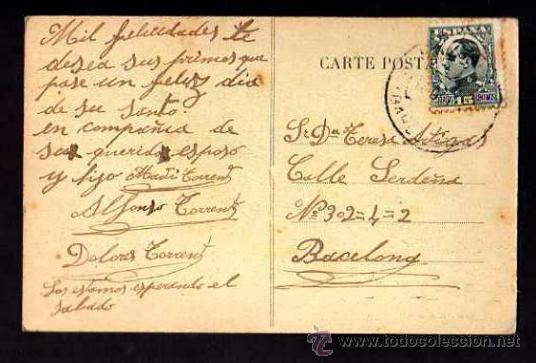 Mil felicidades te
desea sus primos que
pase un feliz dia
de su santo.
en compañia de
su querido esposo
y hijo Madi Torrent
Alfonso Torrent
Dolores Torrent
Los estamos esperando el
sabado
CARTE POST
ESPAÑA
15 CTS
Sr Da Teresa Artigas
Calle Serdeña
Nº 302=4=2
Bacelona
todocoleccion.net